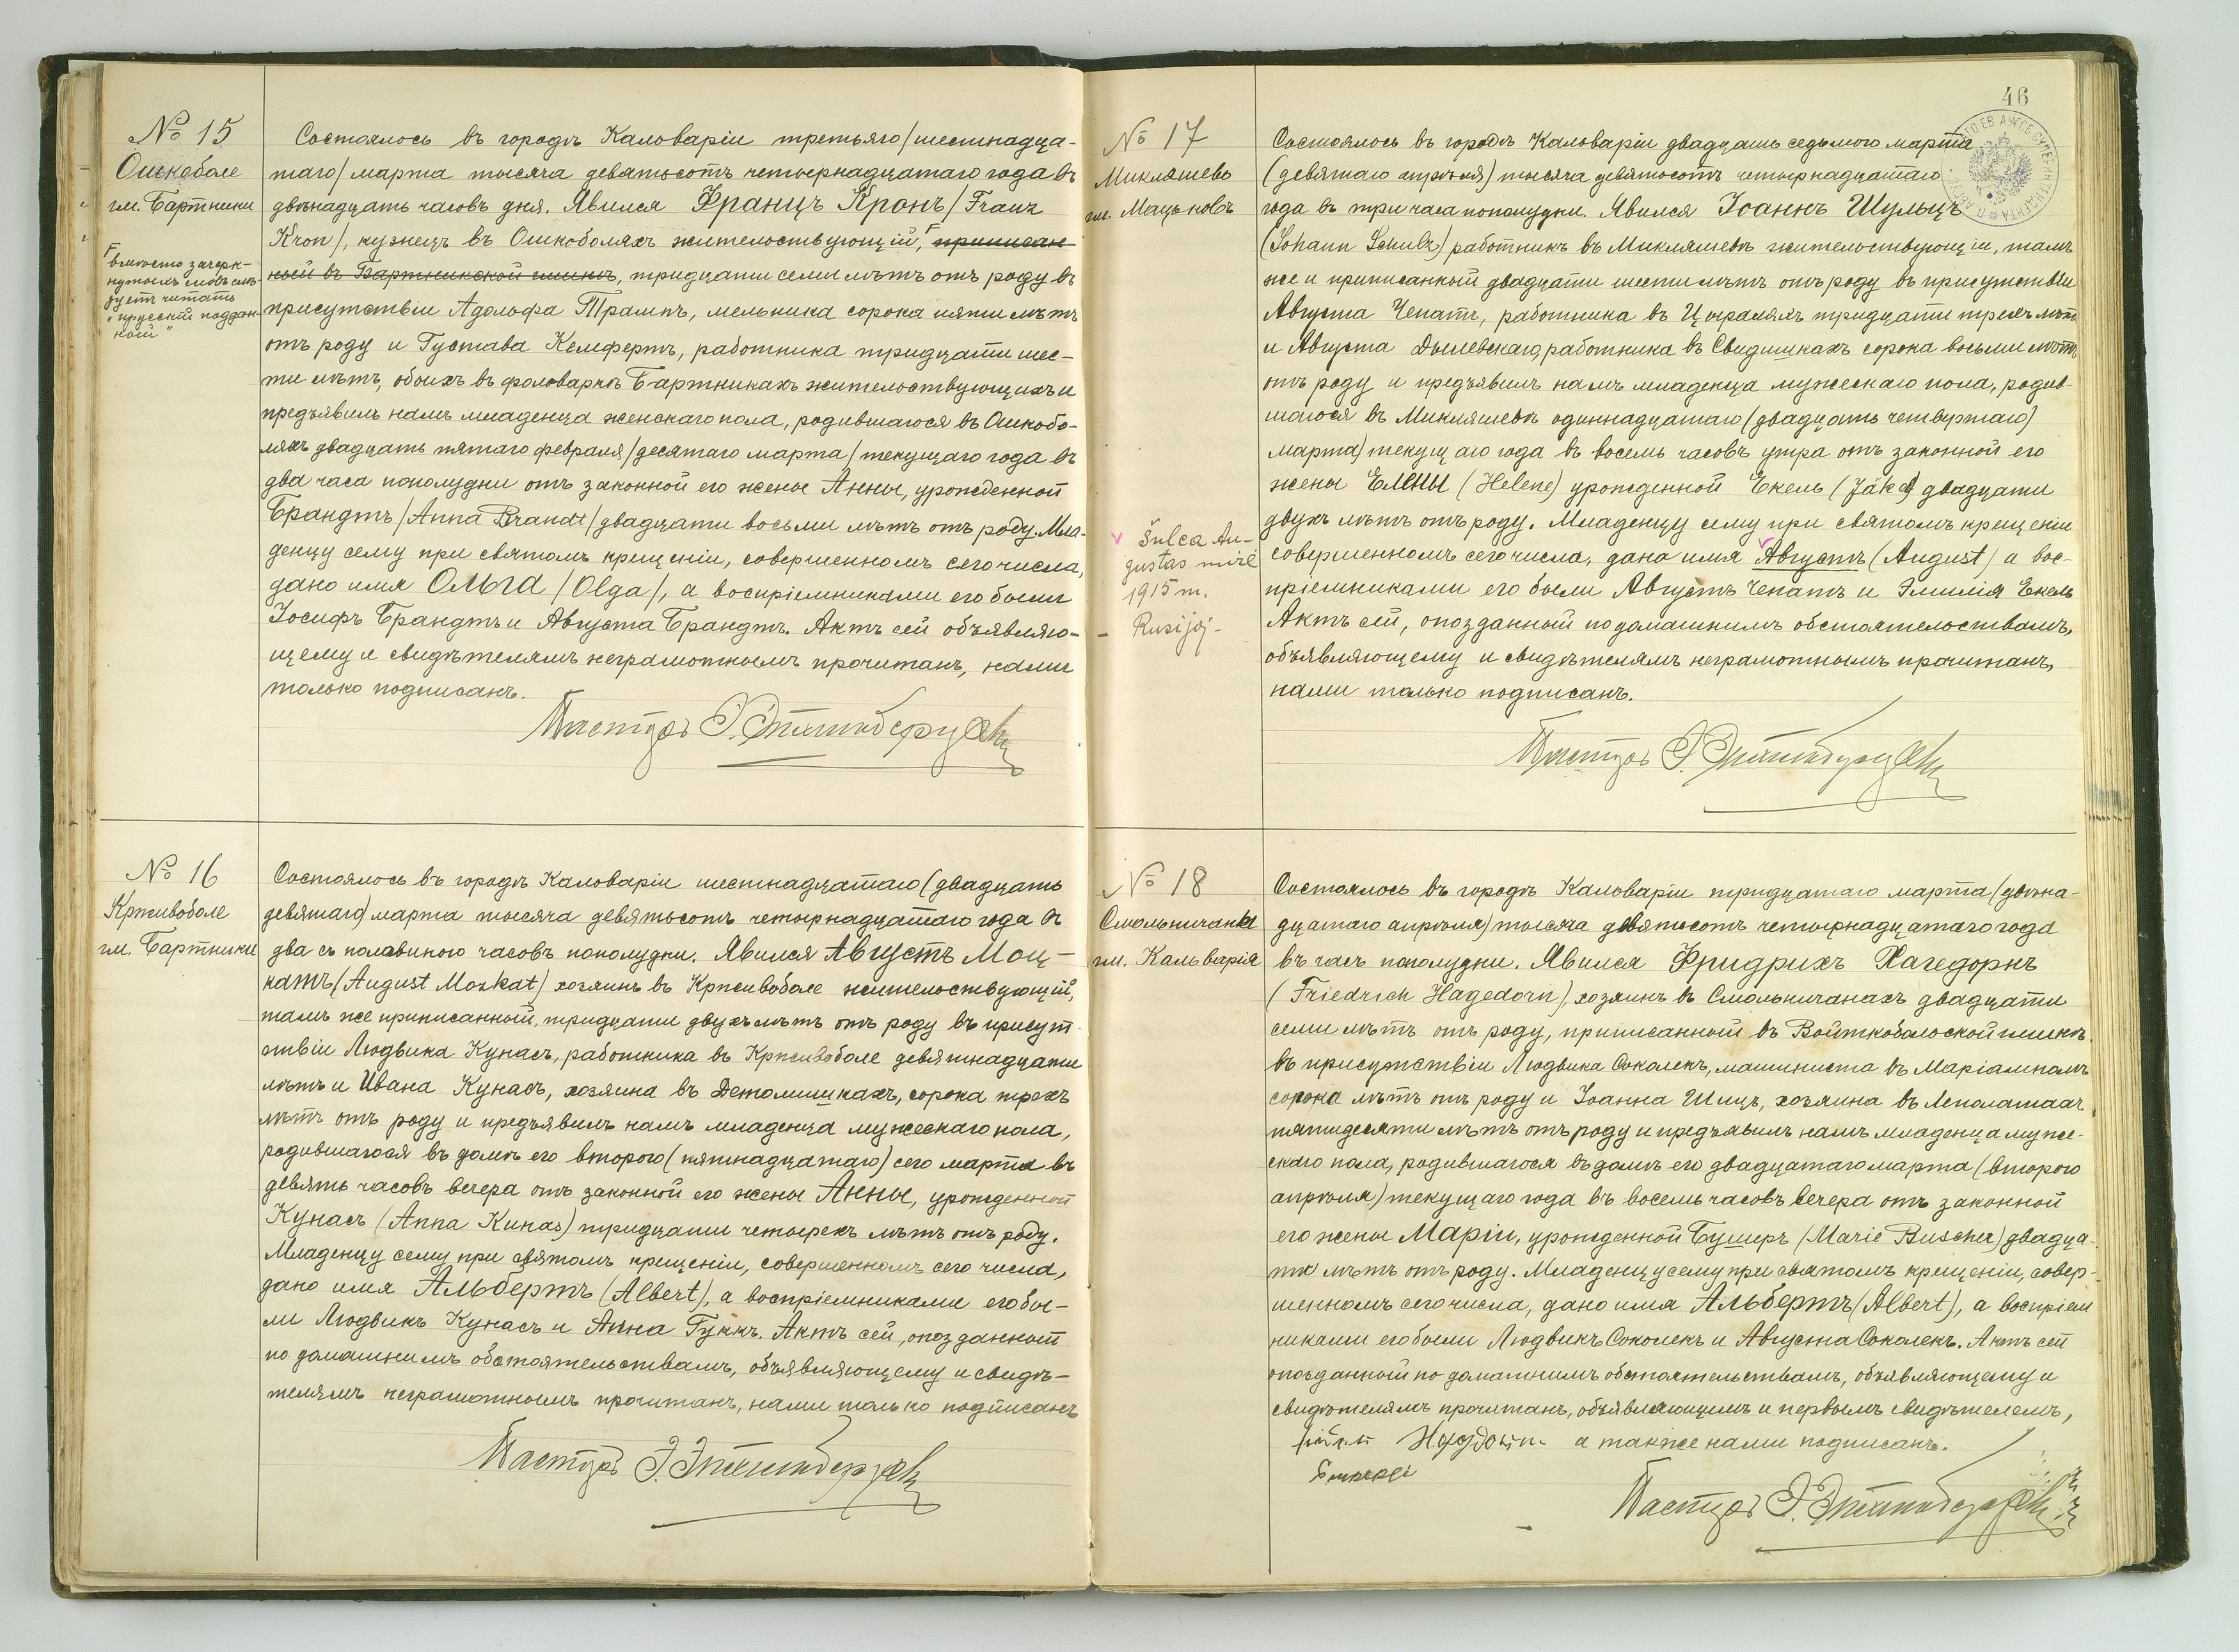 № 15
Ошкеболе
гм. Бартники
вмѣсто зачерк-
нутыхъ словъ слѣ-
дуетъ читать
"прусскій поддан-
ный"
Состоялось въ городѣ Кальваріи третьяго/шестнадца-
таго/ марта тысяча девятьсотъ четырнадцатаго года въ
двѣнадцать часовъ дня. Явился Францъ Кронъ/Franz
Kron/, кузнецъ въ Ошкоболяхъ жительствующій, приписан-
ный въ Бартникской гминѣ, тридцати семи лѣтъ отъ роду въ
присутствіи Адольфа Трампъ, мельника сорока пяти лѣтъ
отъ роду и Густава Кемфертъ, работника тридцати шес-
ти лѣтъ, обоихъ въ фольваркѣ Бартникахъ жительствующихъ и
предъявилъ намъ младенца женскаго пола, родившагося въ Ошкобо-
ляхъ двадцать пятаго февраля/десятаго марта/текущаго года въ
два часа пополудни отъ законной его жены Анны, урожденной
Брандтъ/Anna Brandt/двадцати восьми лѣтъ отъ роду. Мла-
денцу сему при святомъ крещеніи, совершенномъ сего числа,
дано имя Ольга /Olga/, а воспріемниками его были
Іосифъ Брандтъ и Августа Брандтъ. Актъ сей объявляю-
щему и свидѣтелямъ неграмотнымъ прочитанъ, нами
только подписанъ.
Пасторъ
№ 16
Крживоболе
гм. Бартники
Состоялось въ городѣ Кальваріи шестнадцатаго (двадцать
девятаго) марта тысяча девятьсотъ четырнадцатаго года въ
два съ половиною часовъ пополудни. Явился Августъ Моц-
катъ (August Mozkat) хозяинъ въ Крживоболе жительствующій,
тамъ же приписанный, тридцати двухъ лѣтъ отъ роду въ присут-
ствіи Людвика Кунасъ, работника въ Крживоболе девятнадцати
лѣтъ и Ивана Кунасъ, хозяина въ Детомишкахъ, сорока трехъ
лѣтъ отъ роду и предъявилъ намъ младенца мужескаго пола,
родившагося въ домѣ его второго (пятнадцатаго) сего марта въ
девять часовъ вечера отъ законной его жены Анны, урожденной
Кунасъ (Anna Kunas) тридцати четырехъ лѣтъ отъ роду.
Младенцу сему при святомъ крещеніи, совершенномъ сего числа,
дано имя Альбертъ (Albert), а воспріемниками его бы-
ли Людвикъ Кунасъ и Анна Гуккъ. Актъ сей, опозданный
по домашнимъ обстоятельствамъ, объявляющему и свидѣ-
телямъ неграмотнымъ прочитанъ, нами только подписанъ
Пасторъ
46
№ 17
Микляшево
гм. Мацьковъ
Šulca Au-
gustas mirė
1915 m.
Rusijoj-
Состоялось въ городѣ Кальваріи двадцать седьмого марта
(девятаго апрѣля) тысяча девятьсотъ четырнадцатаго
года въ три часа пополудни. Явился Іоаннъ Шульцъ
(Johann Schulz) работникъ въ Микляшевѣ жительствующій, тамъ
же и приписанный двадцати шести лѣтъ отъ роду въ присутствіи
Августа Чепатъ, работника въ тридцати трехъ лѣтъ
и Августа Дылевскаго, работника въ Свидишкахъ сорока восьми лѣтъ
отъ роду и предъявилъ намъ младенца мужескаго пола, родив-
шагося въ Микляшевѣ одиннадцатаго (двадцать четвертаго)
марта) текущаго года въ восемь часовъ утра отъ законной его
жены Елены (Helene) урожденной Екель (Jäkel) двадцати
двухъ лѣтъ отъ роду. Младенцу сему при святомъ крещеніи
совершенномъ сего числа, дано имя Августъ (August) а вос-
пріемниками его были Августъ Чепатъ и Эмилія Екель
Актъ сей, опозданный по домашнимъ обстоятельствамъ,
объявляющему и свидѣтелямъ неграмотнымъ прочитанъ,
нами только подписанъ.
Пасторъ
№ 18
Смольничанка
гм. Кальварія
Состоялось въ городѣ Кальваріи тридцатаго марта (двѣна-
дцатаго апрѣля) тысяча девятьсотъ четырнадцатаго года
въ часъ пополудни. Явился Фридрихъ Хагедорнъ
(Friedrich Hagedorn), хозяинъ въ Смольничанахъ двадцати
семи лѣтъ отъ роду, приписанный въ Войткобольской гминѣ.
въ присутствіи Людвика Соколекъ, машиниста въ Маріамполѣ
сорока лѣтъ отъ роду и Іоанна Шицъ, хозяина въ
пятидесяти лѣтъ отъ роду и предъявилъ намъ младенца муже-
скаго пола, родившагося въ домѣ его двадцатаго марта (второго
апрѣля) текущаго года въ восемь часовъ вечера отъ законной
его жены Маріи, урожденной Бушеръ (Marie Buscher) двадца-
ти лѣтъ отъ роду. Младенцу сему при святомъ крещеніи, совер-
шенномъ сего числа, дано имя Альбертъ (Albert), а воспріем
никами его были Людвикъ Соколекъ и Августа Соколекъ. Актъ сей
опозданный по домашнимъ обстоятельствамъ, объявляющему и
свидѣтелямъ прочитанъ, объявляющимъ и первымъ свидѣтелемъ,
а также нами подписанъ.
Пасторъ